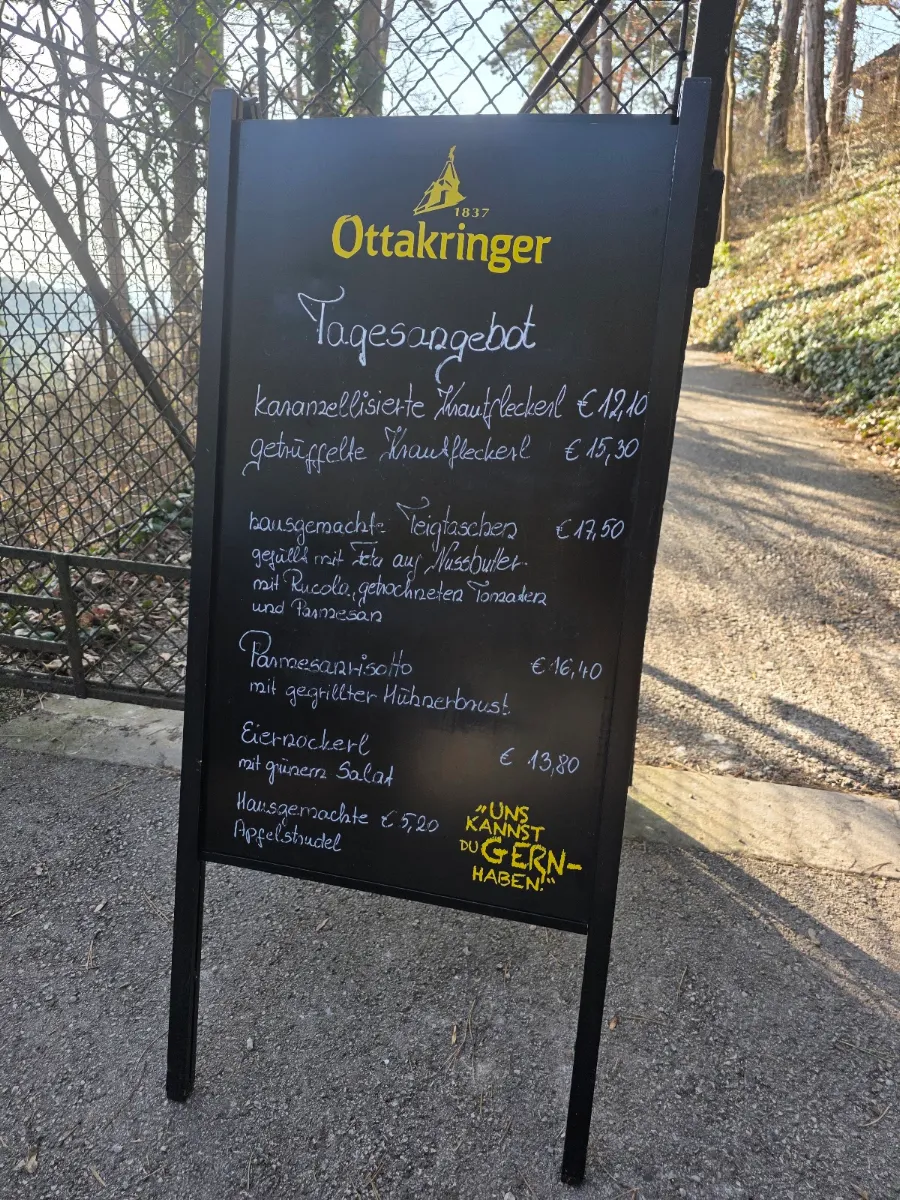 1837
Ottakringer
Tagesangebot
karamellisierte Krautfleckerl € 12,10
getrüffelte Krautfleckerl € 15,30
hausgemachte Teigtaschen € 17,50
gefüllt mit Feta auf Nussbutter
mit Rucola, getrochneten Tomaten
und Parmesan
Parmesanrisotto € 16,40
mit gegrillter Hühnerbrust
Eiernockerl € 13,80
mit grünem Salat
Hausgemachte € 5,20
Apfelstrudel
„UNS
KANNST
DU GERN-
HABEN!“